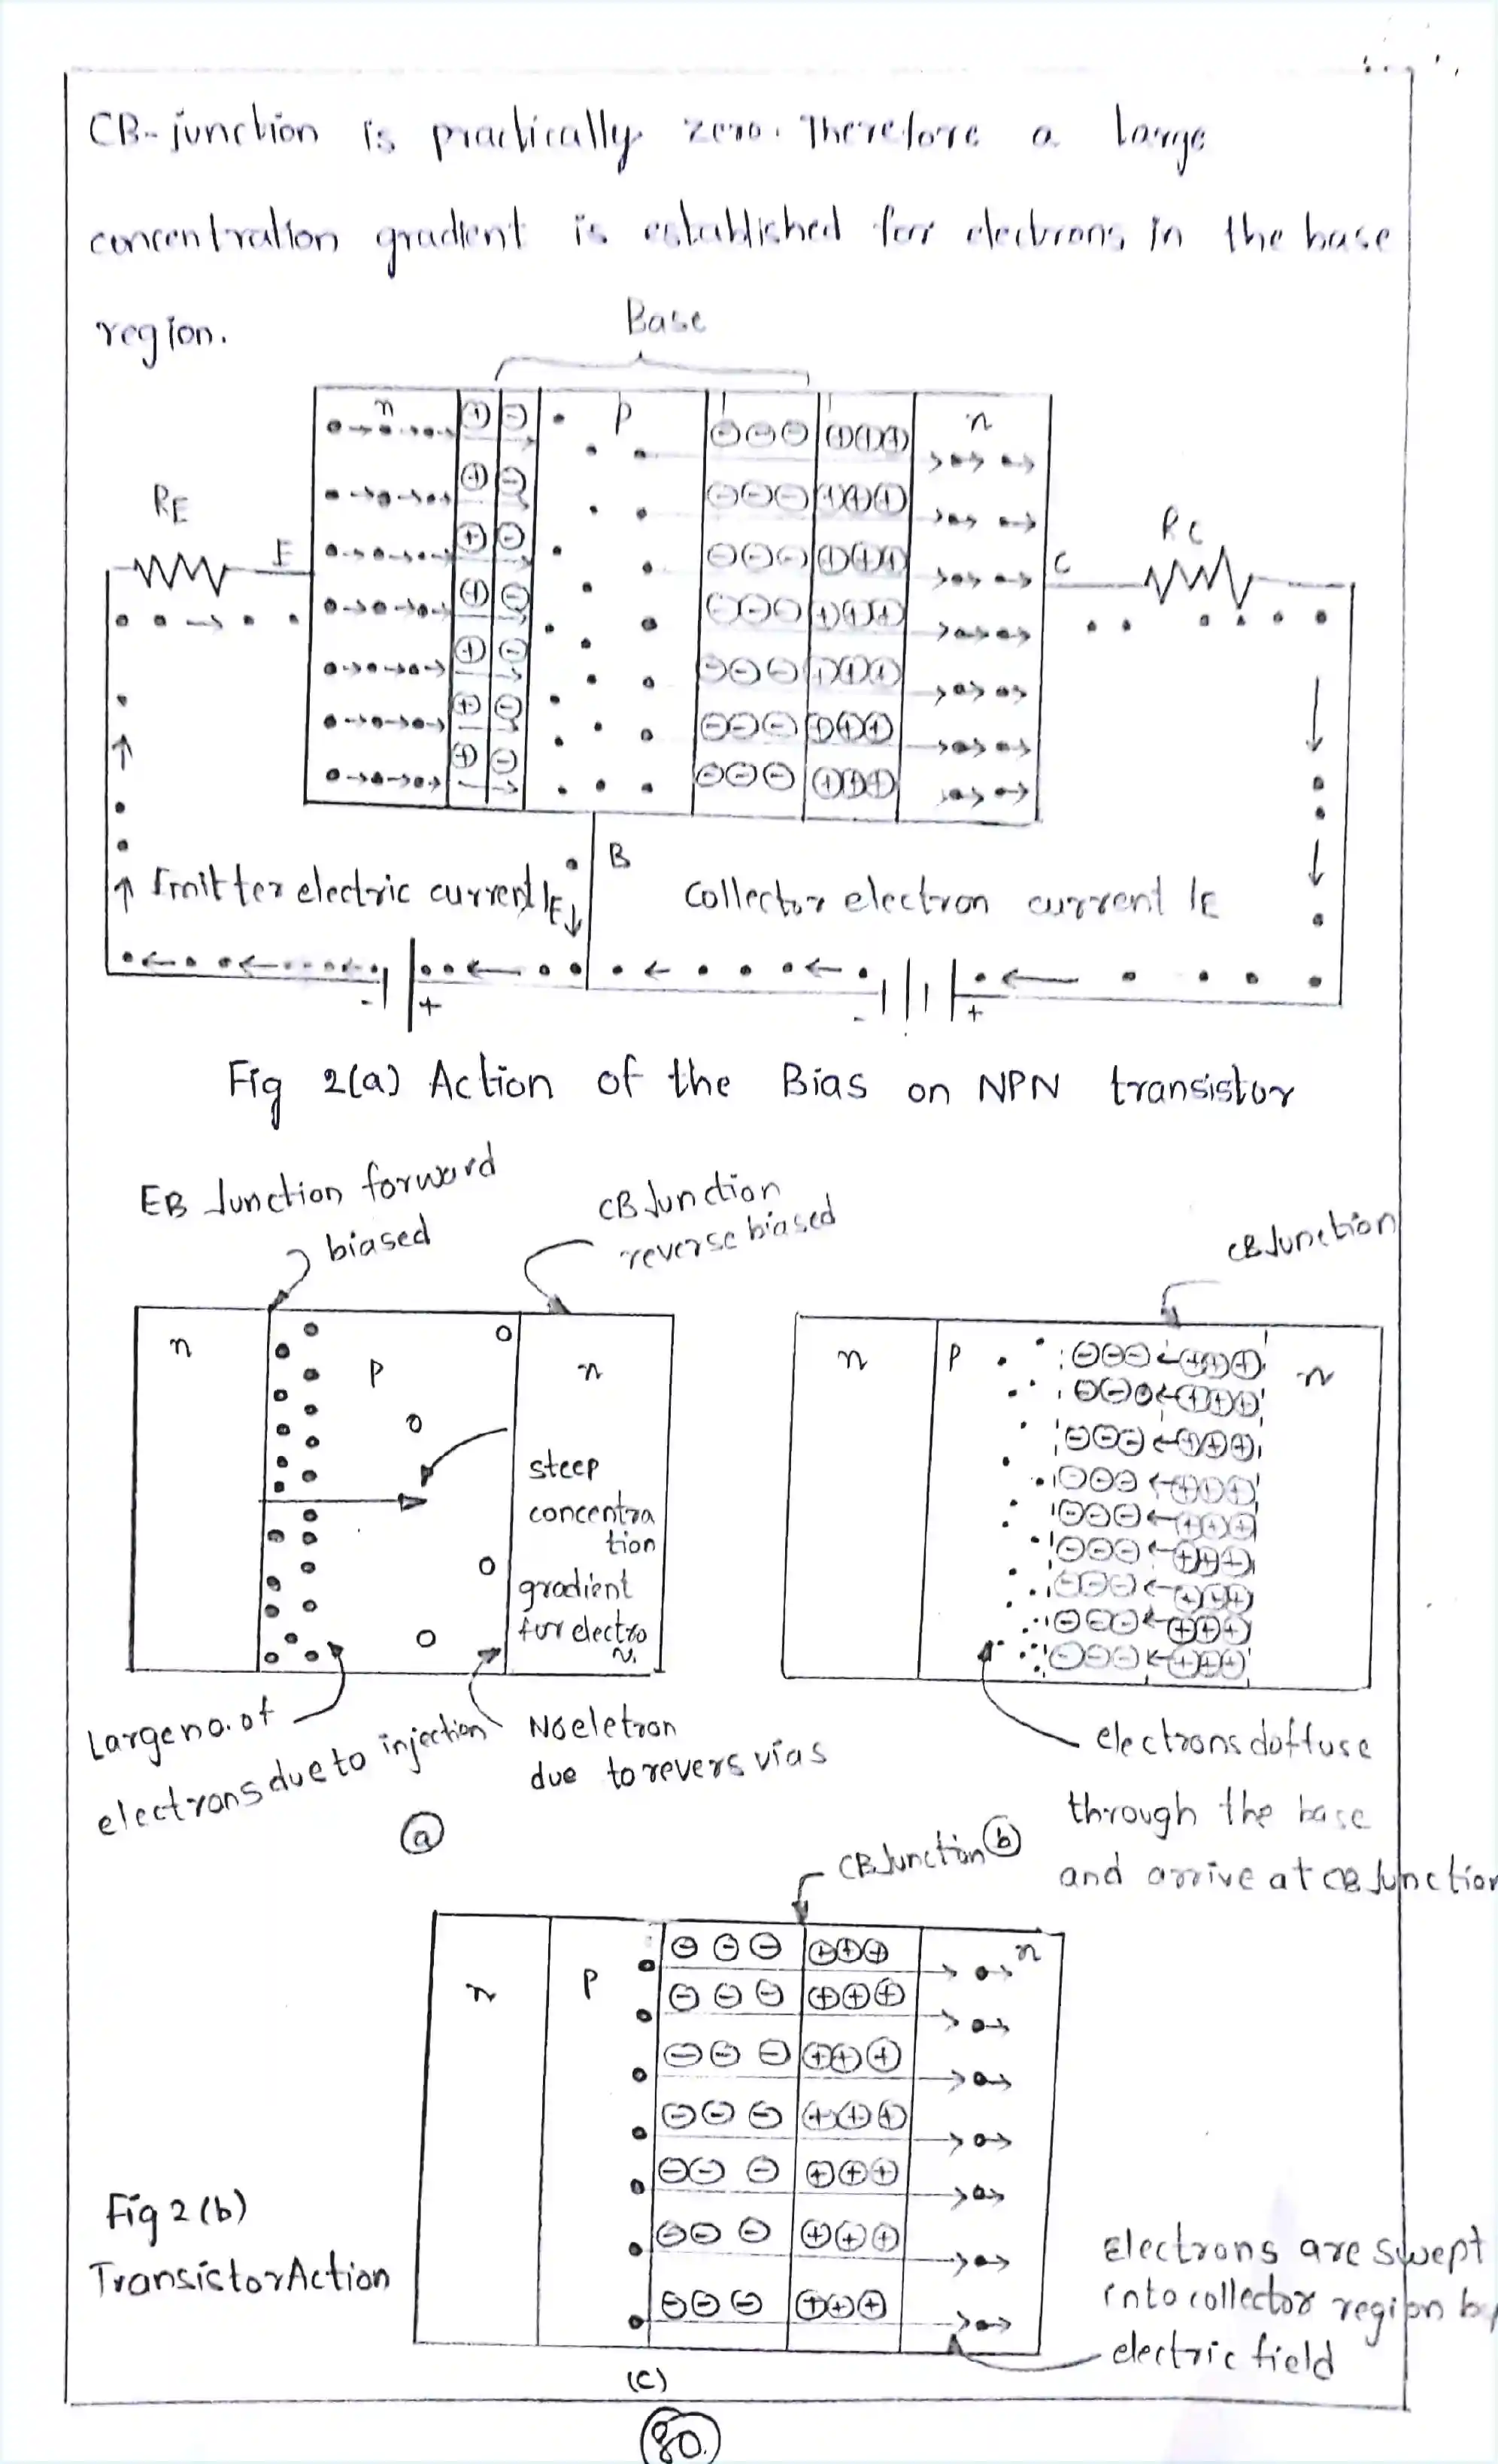 CB-junction is practically zero. Therefore a large
concentration gradient is established for electrons in the base
region.
Base
n
p
n
RE
E
C
RC
B
Emitter electric current IE
Collector electron current IE
-
+
-
+
Fig 2(a) Action of the Bias on NPN transistor
EB Junction forward
biased
CB Junction
reverse biased
CB Junction
n
p
n
steep
concentra
tion
gradient
for electro
n.
n
p
n
Large no. of
electrons due to injection
No eletron
due to revers vias
(a)
electrons doffuse
through the base
and arrive at CB Junction
(b)
CB Junction
n
p
n
Fig 2(b)
Transistor Action
Electrons are swept
into collector region by
electric field
(C)
80.